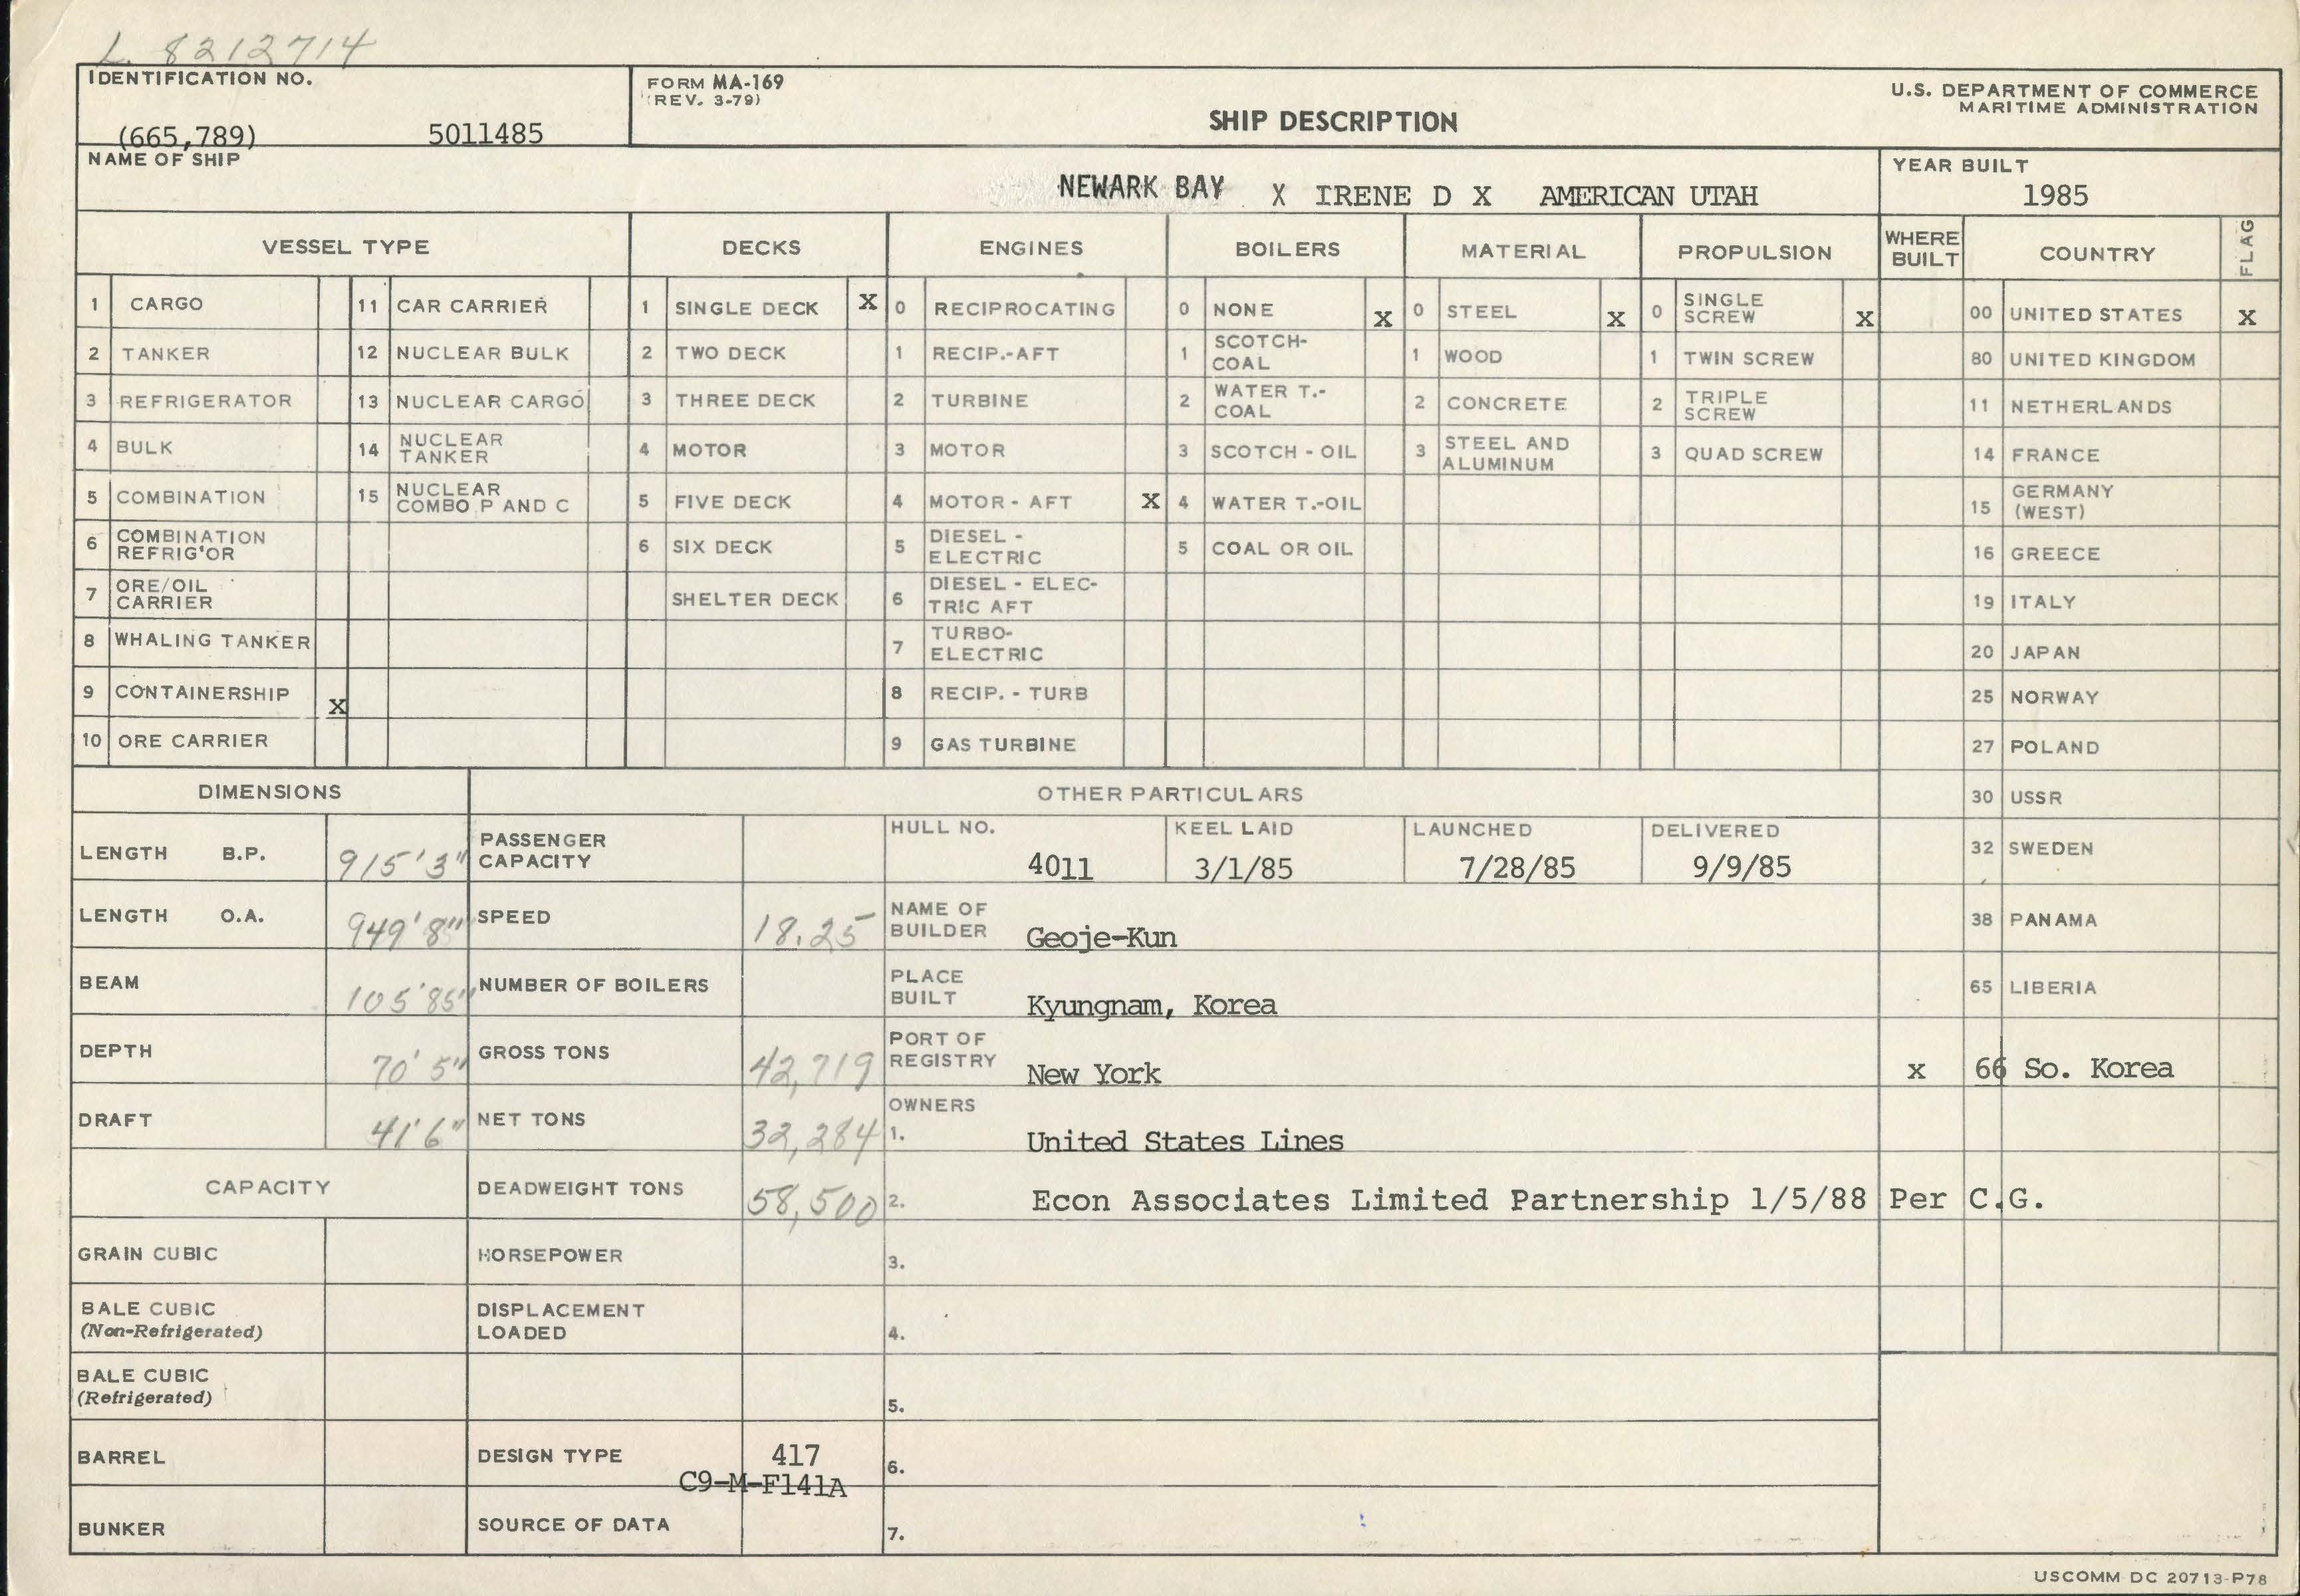 L. 8212714
IDENTIFICATION NO.
(665,789) 5011485
FORM MA-169
(REV. 3-79)
SHIP DESCRIPTION
U.S. DEPARTMENT OF COMMERCE
MARITIME ADMINISTRATION
NAME OF SHIP
NEWARK BAY X IRENE D X AMERICAN UTAH
YEAR BUILT
1985
VESSEL TYPE DECKS ENGINES BOILERS MATERIAL PROPULSION WHERE BUILT COUNTRY FLAG
1 CARGO 11 CAR CARRIER 1 SINGLE DECK X 0 RECIPROCATING 0 NONE X 0 STEEL X 0 SINGLE SCREW X 00 UNITED STATES X
2 TANKER 12 NUCLEAR BULK 2 TWO DECK 1 RECIP.-AFT 1 SCOTCH-COAL 1 WOOD 1 TWIN SCREW 80 UNITED KINGDOM
3 REFRIGERATOR 13 NUCLEAR CARGO 3 THREE DECK 2 TURBINE 2 WATER T.-COAL 2 CONCRETE 2 TRIPLE SCREW 11 NETHERLANDS
4 BULK 14 NUCLEAR TANKER 4 MOTOR 3 MOTOR 3 SCOTCH - OIL 3 STEEL AND ALUMINUM 3 QUAD SCREW 14 FRANCE
5 COMBINATION 15 NUCLEAR COMBO P AND C 5 FIVE DECK 4 MOTOR - AFT X 4 WATER T.-OIL 15 GERMANY (WEST)
6 COMBINATION REFRIG'OR 6 SIX DECK 5 DIESEL - ELECTRIC 5 COAL OR OIL 16 GREECE
7 ORE/OIL CARRIER SHELTER DECK 6 DIESEL - ELECTRIC AFT 19 ITALY
8 WHALING TANKER 7 TURBO-ELECTRIC 20 JAPAN
9 CONTAINERSHIP X 8 RECIP. - TURB 25 NORWAY
10 ORE CARRIER 9 GAS TURBINE 27 POLAND
DIMENSIONS OTHER PARTICULARS 30 USSR
LENGTH B.P. 915'3" PASSENGER CAPACITY HULL NO. 4011 KEEL LAID 3/1/85 LAUNCHED 7/28/85 DELIVERED 9/9/85 32 SWEDEN
LENGTH O.A. 949'8" SPEED 18.25 NAME OF BUILDER Geoje-Kun 38 PANAMA
BEAM 105'85" NUMBER OF BOILERS PLACE BUILT Kyungnam, Korea 65 LIBERIA
DEPTH 70'5" GROSS TONS 42,719 PORT OF REGISTRY New York x 66 So. Korea
DRAFT 41'6" NET TONS 32,284 OWNERS 1. United States Lines
CAPACITY DEADWEIGHT TONS 58,500 2. Econ Associates Limited Partnership 1/5/88 Per C.G.
GRAIN CUBIC HORSEPOWER 3.
BALE CUBIC (Non-Refrigerated) DISPLACEMENT LOADED 4.
BALE CUBIC (Refrigerated) 5.
BARREL DESIGN TYPE 417 C9-M-F141A 6.
BUNKER SOURCE OF DATA 7.
USCOMM DC 20713-P78